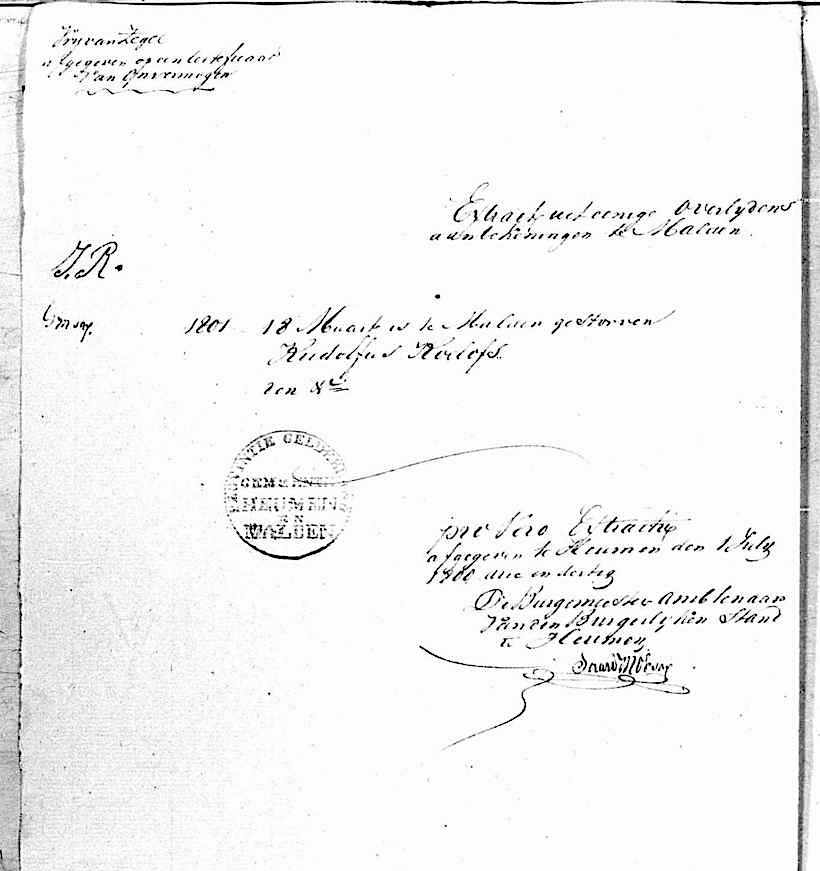 Vrij van Zegel
afgegeven op een Certificaat
van Onvermogen
Extract uit eenige Overlydens
aantekeningen te Malden.
1801 18 Maart is te Malden gestorven
Rudolfus Roelofs
PROVINTIE GELDERLAND
GEMEENTE
HEUMEN
EN
MALDEN
pro Vero Extractu
afgegeven te Heumen den 1 July
1800 drie en dertig
De Burgemeester Ambtenaar
van den Burgerlyken Stand
te Heumen